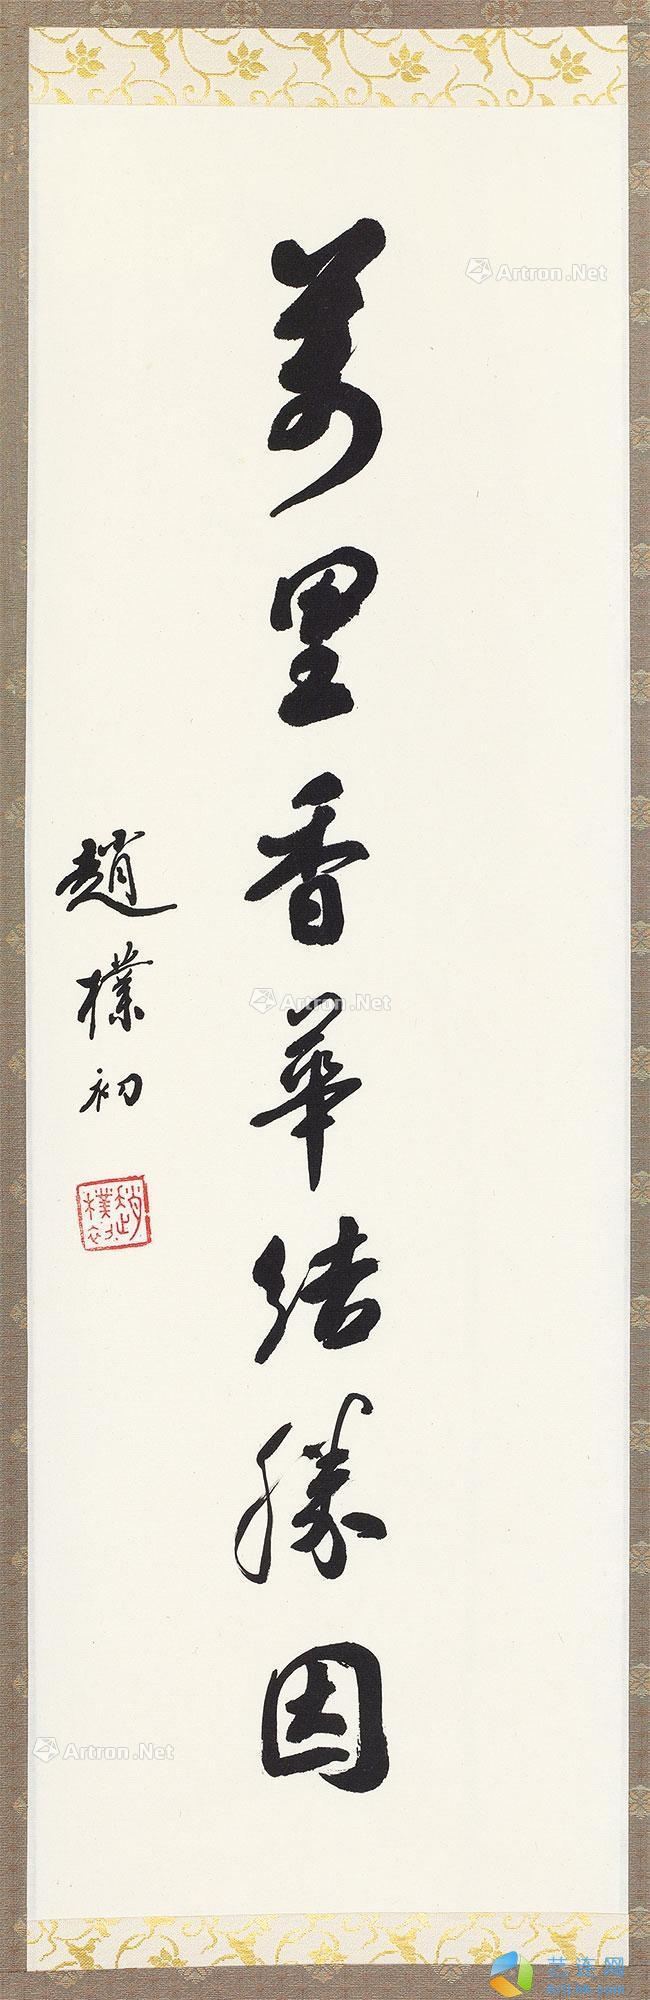 萬里香華結勝因
趙樸初
趙樸初
Artron.Net
Artron.Net
Artron.Net
艺连网